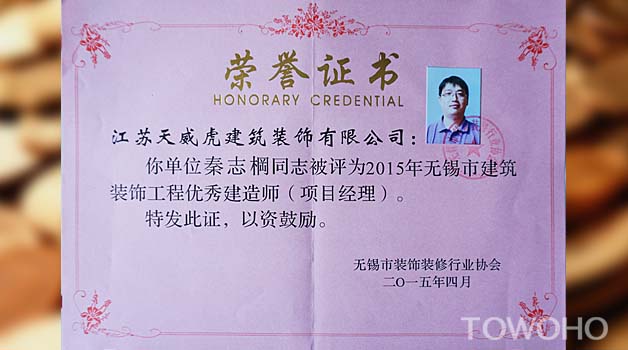 荣誉证书
HONORARY CREDENTIAL
江苏天威虎建筑装饰有限公司：
你单位秦志棡同志被评为2015年无锡市建筑
装饰工程优秀建造师（项目经理）。
特发此证，以资鼓励。
无锡市装饰装修行业协会
二O一五年四月
TOWOHO